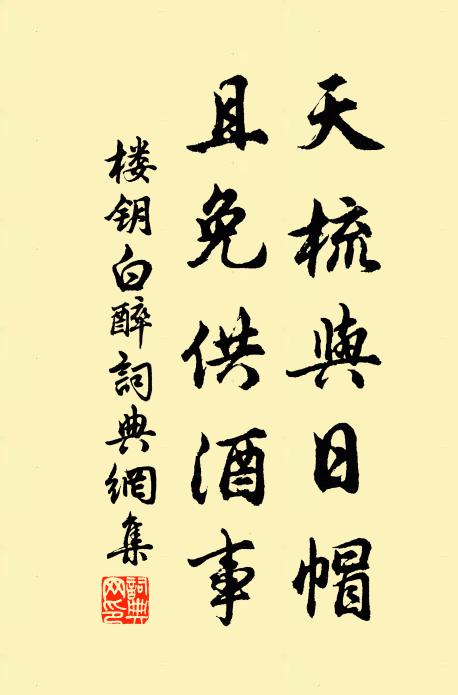 天梳與日帽
且免供酒事
楼钥白醉詞典網集
詞典網印